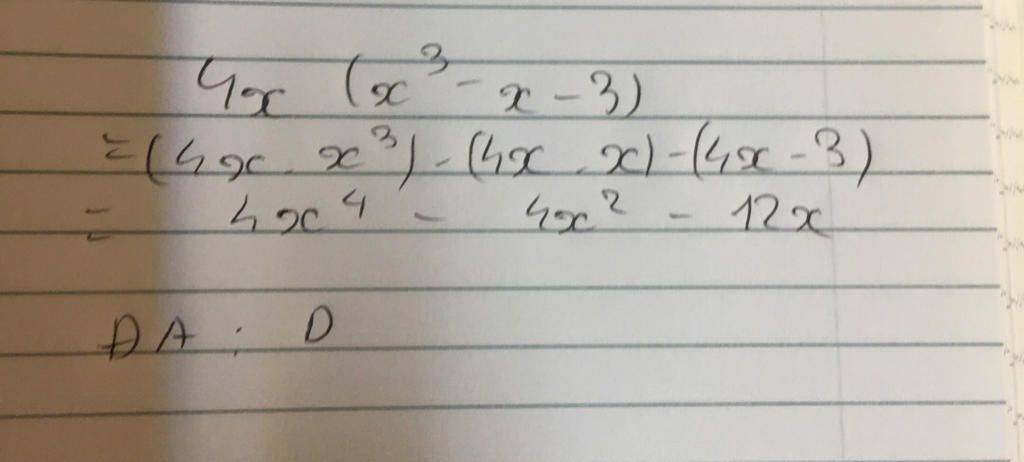 4x (x³ - x - 3)
= (4x . x³) - (4x . x) - (4x - 3)
= 4x⁴ - 4x² - 12x
ĐA : D